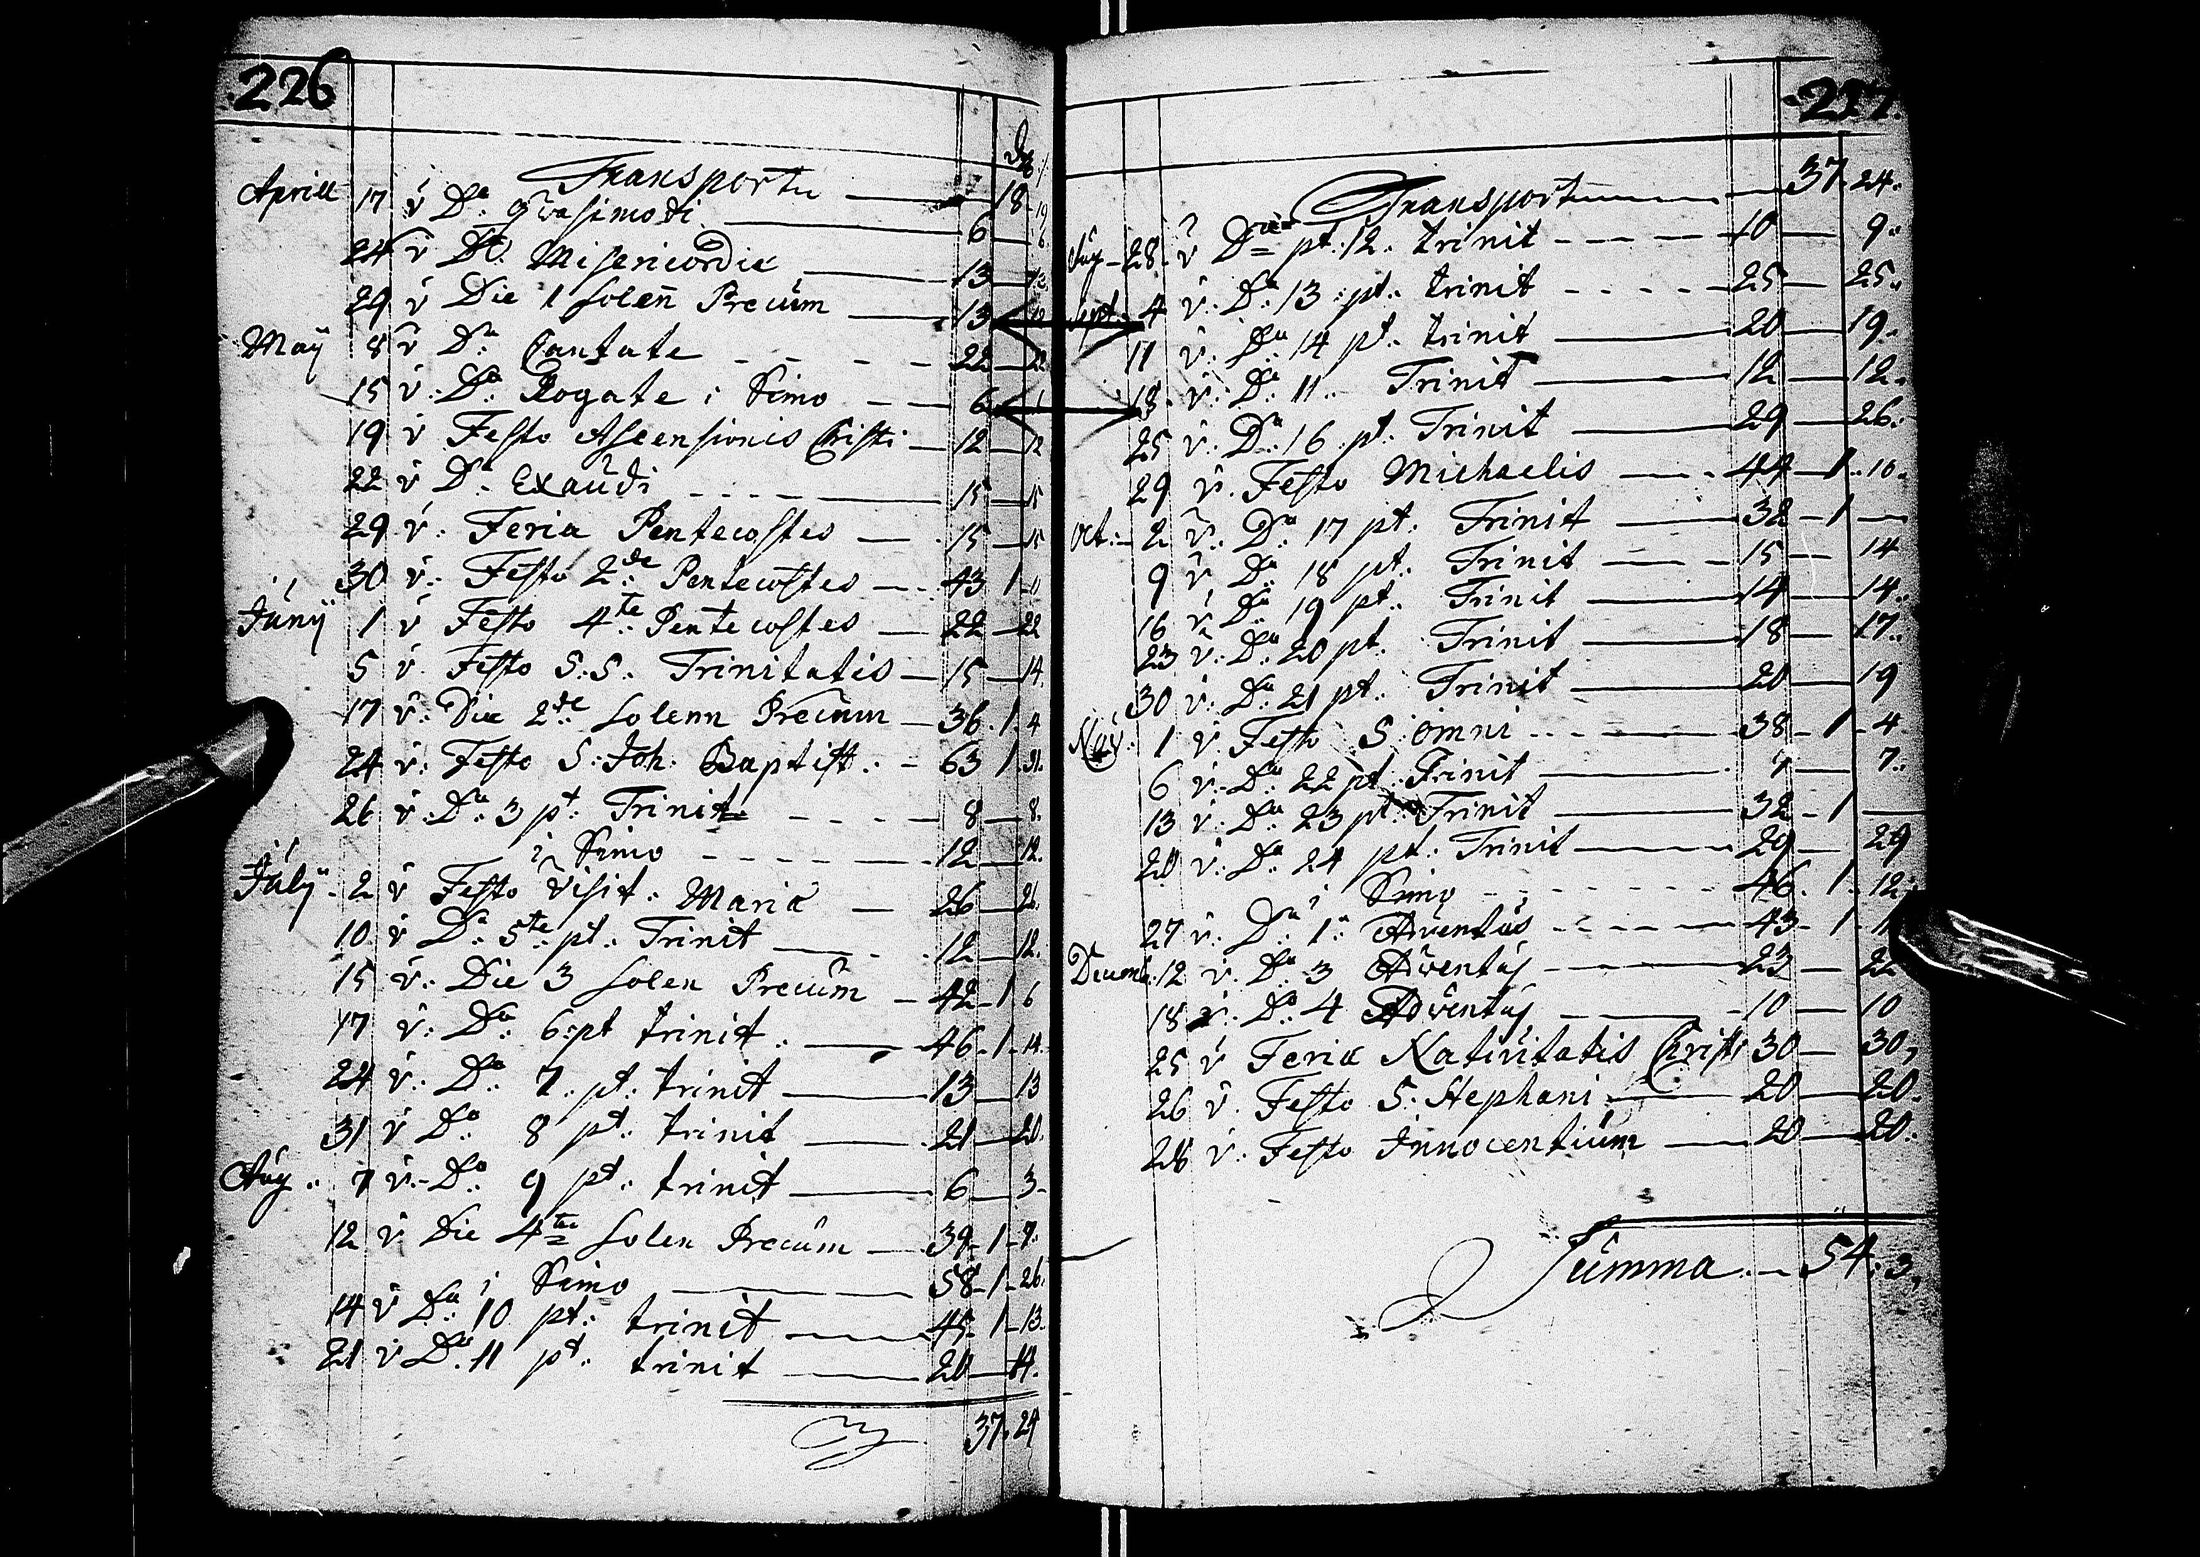 226
Transportu — 18 - 19
Aprill 17 v Da. Qvasimodi — 6 — 6
24 v Do. Misericordiæ — 13
29 v Die 1 solen̄ Precŭm — 13
Maÿ 8 v Da Cantate - - - 22 — 22
15 v. Da Rogate i Simo — 6
19 v Festo Ascensionis Christi — 12 — 12
22 v Da. Exaŭdi - - - — 15 — 15
29 v. Feria Pentecostes — 15 — 15
30 v. Festo 2de Pentecostes — 43 1
Jŭnÿ 1 v Festo 4te Pentecostes — 22 — 22
5 v. Festo S.S. Trinitatis — 15 — 14.
17 v. Die 2de solenn Precŭm — 36. 1. 4
24 v. Festo S. Joh. Baptist. - 63 1. 31.
26 v. Da. 3 pt. Trinit - - - - 8 — 8.
i Simo - - - - 12 — 12.
Jŭlÿ - 2 v Festo Visit. Mariæ — 26 —
10 v Da. 5te pt. Trinit — 12 — 12.
15 v. Die 3 solen Precŭm — 42 - 1 6
17 v. Da. 6. pt trinit — 46 - 1 - 14.
24 v. Da. 7. pt. trinit — 13 — 13
31 v Da. 8 pt. trinit — 21 — 20.
Aŭg. 7 v. Da. 9 pt. trinit — 6 — 3-
12 v. Die 4te solen Precŭm — 39 - 1 - 7.
i Simo — 58 - 1 - 26.
14 v Da 10 pt. trinit — 45 - 1 - 13.
21 v Da. 11 pt. trinit — 20 —
37. 24
227.
Transportu — 37. 24.
Aŭg - 28. v Da pt. 12. trinit - - - - 10 — 9.
Sept. 4 v. Da 13 pt. trinit - - - - 25 — 25.
11 v. Da 14 pt. trinit — 20 — 19.
18. v. Da 11. Trinit — 12 — 12.
25 v. Da. 16 pt. Trinit — 29 — 26.
29 v. Festo Michaelis — 44 — 1. 10.
Oct. - 2 v. Da 17 pt. Trinit — 32 - 1 —
9 v Da 18 pt. Trinit — 15 — 14
16 v. Da. 19 pt. Trinit — 14 — 14.
23 v. Da. 20 pt. Trinit — 18 — 17.
30 v. Da 21 pt. Trinit — 20 — 19
Nov. 1 v Festo S. Omni - - - 38 - 1 - 4.
6 v. Da 22 pt. Trinit — 7 — 7.
13 v. Da. 23 pt. Trinit — 32 - 1 —
20 v. Da. 24 pt. Trinit — 29 — 29
i Simo - - - - - - 46. 1. 12.
27 v. Da 1. Adventŭs - - - - 43 - 1 -
Decemb. 12 v. Da 3 Adventŭs — 23 — 22
18 v. Da 4 Adventŭs — 10 — 10
25 v Feriæ Nativitatis Christi 30 — 30,
26 v. Festo S. Stephani — 20 — 20.
28 v. Festo Innocentiŭm — 20 — 20.
Sŭmma — 54. 3,